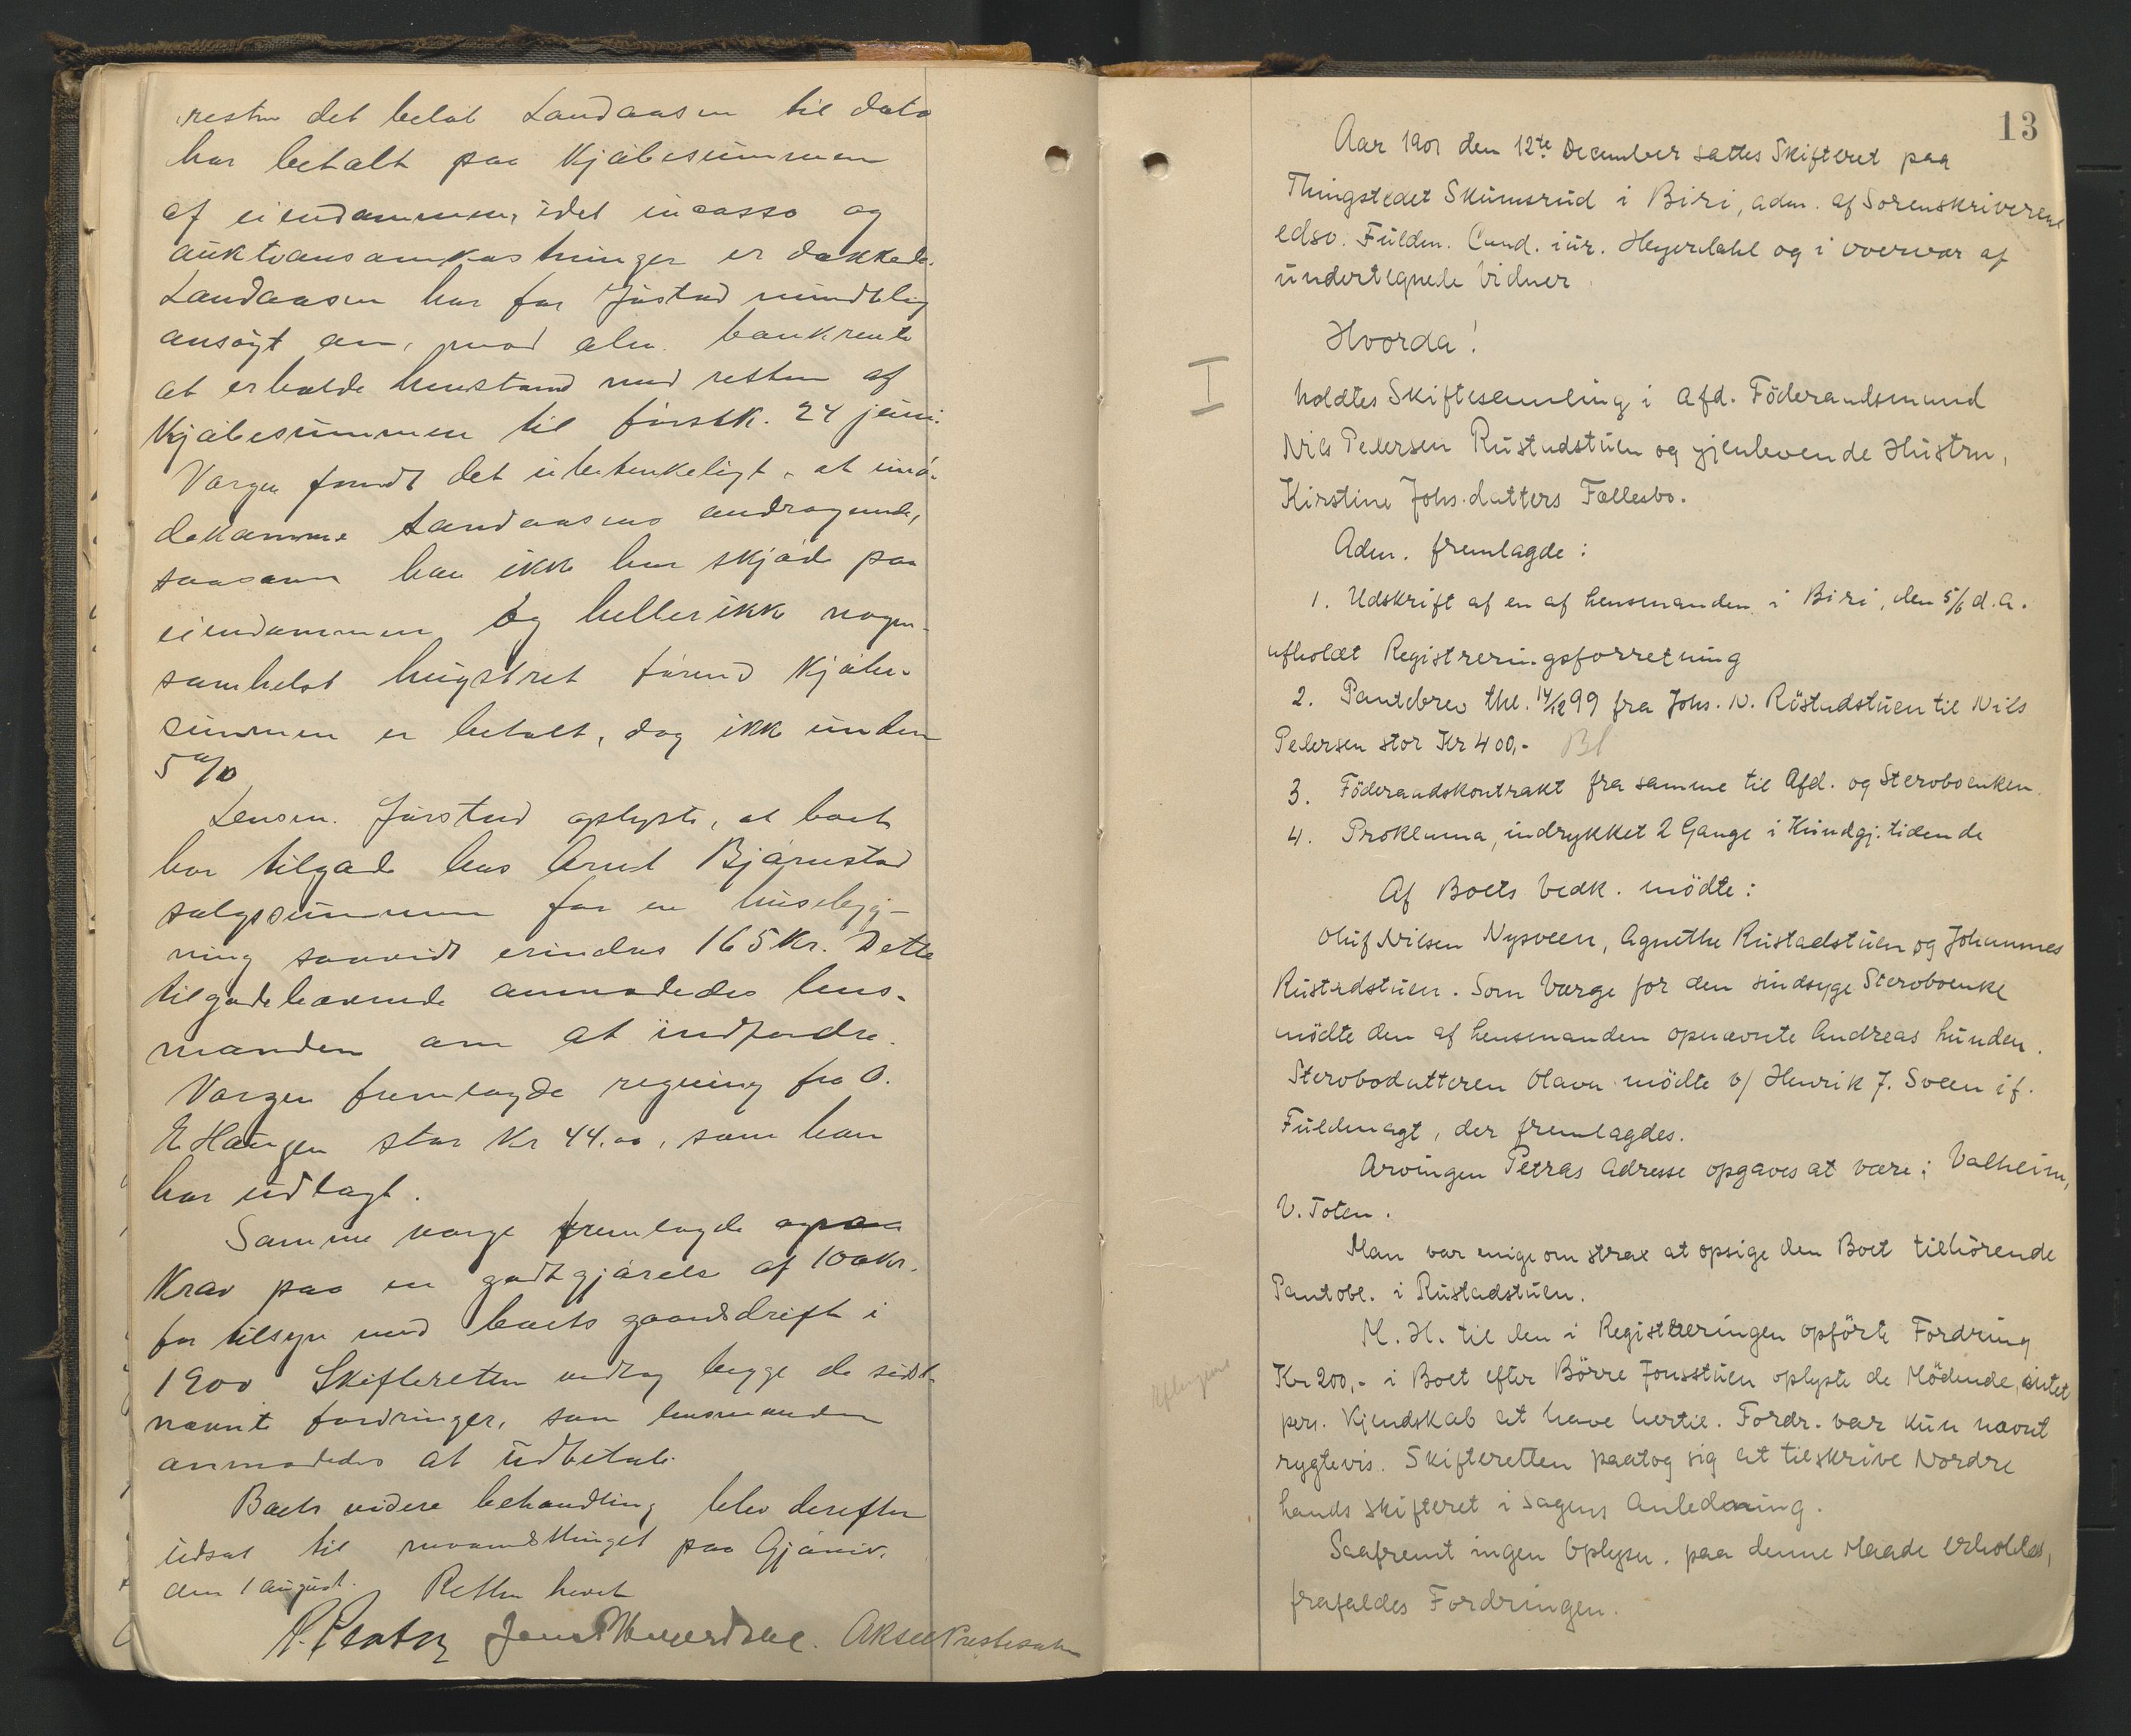 resten det beløb Landaasen til dato
har betalt paa kjøbesummen
af eiendommen, idet incasso og
auktionsomkostninger er dækkede.
Landaasen har for Jørstad mundtlig
ansøgt om, mod alm. bankrente
at erholde henstand med resten af
Kjøbesummen til førstk. 24 juni.
Værgen fandt det ubetenkeligt, at imø-
dekomme Landaasens andragende,
saasom han ikke har skjøde paa
eiendommen og heller ikke nogen-
somhelst hugstret førend Kjøbe-
summen er betalt, dog ikke under
5 %
Lensm. Jørstad oplyste, at boet
har tilgode hos Arnt Bjørnstad
salgssummen for en husebyg-
ning saavidt erindres 165 Kr. Dette
tilgodehavende anmodedes lens-
manden om at indfordre.
Værgen fremlagde regning fra O.
E. Haugen stor Kr 44.00, som han
har udlagt.
Samme værge fremlagde ogsaa
Krav paa en godtgjørelse af 100 Kr.
for tilsyn med boets gaardsdrift i
1900 Skifteretten vedtog begge de sidst-
nævnte fordringer, som lensmanden
anmodedes at udbetale.
Boets videre behandling blev derefter
udsat til thinget paa Gjøvik
den 1 august. Retten hævet
13
Aar 1901 den 12te December sattes Skifteret paa
Thingstedet Skumsrud i Biri, adm. af Sorenskriverens
edsv. Fuldm. Cand. iur. Heyerdahl og i overvær af
undertegnede Vidner
Hvorda!
I
holdtes Skiftesamling i Afd. Föderaadsmand
Nils Pedersen Rustadstuen og gjenlevende Hustru,
Kirstine Johs.datters Fællesbo.
Adm. fremlagde:
1. Udskrift af en af Lensmanden i Biri, den 5/6 d.A.
afholdt Registreringsforretning
2. Pantebrev thl. 14/12 99 fra Johs. N. Rüstadstuen til Nils
Pedersen stor Kr 400,- Bl
3. Föderaadskontrakt fra samme til Afd. og Sterboenken.
4. Proklama, indrykket 2 Gange i Kundgj.tidende
Af Boets Vedk. mödte:
Oluf Nilsen Nysveen, Agnethe Rustadstuen og Johannes
Rustadstuen. Som Værge for den sindsyge Stervboenke
mödte den af Lensmanden opnævnte Andreas Lunden.
Stervbodatteren Olava mödte v/ Henrik J. Sveen if.
Fuldmagt, der fremlagdes.
Arvingen Petras Adresse opgaves at være: Valheim,
V. Toten.
Man var enige om strax at opsige den Boet tilhörende
Pantobl. i Rustadstuen.
M. H. til den i Registreringen opförte Fordring
Kr 200,- i Boet efter Börre Fonsstuen oplyste de Mödende, intet
pers. Kjendskab at have hertil. Fordr. var kun nævnt
rygtevis. Skifteretten paatog sig at tilskrive Nordre
Lands skifteret i sagens Anledning.
Saafremt ingen Oplysn. paa denne Maade erholdes,
frafaldes Fordringen.